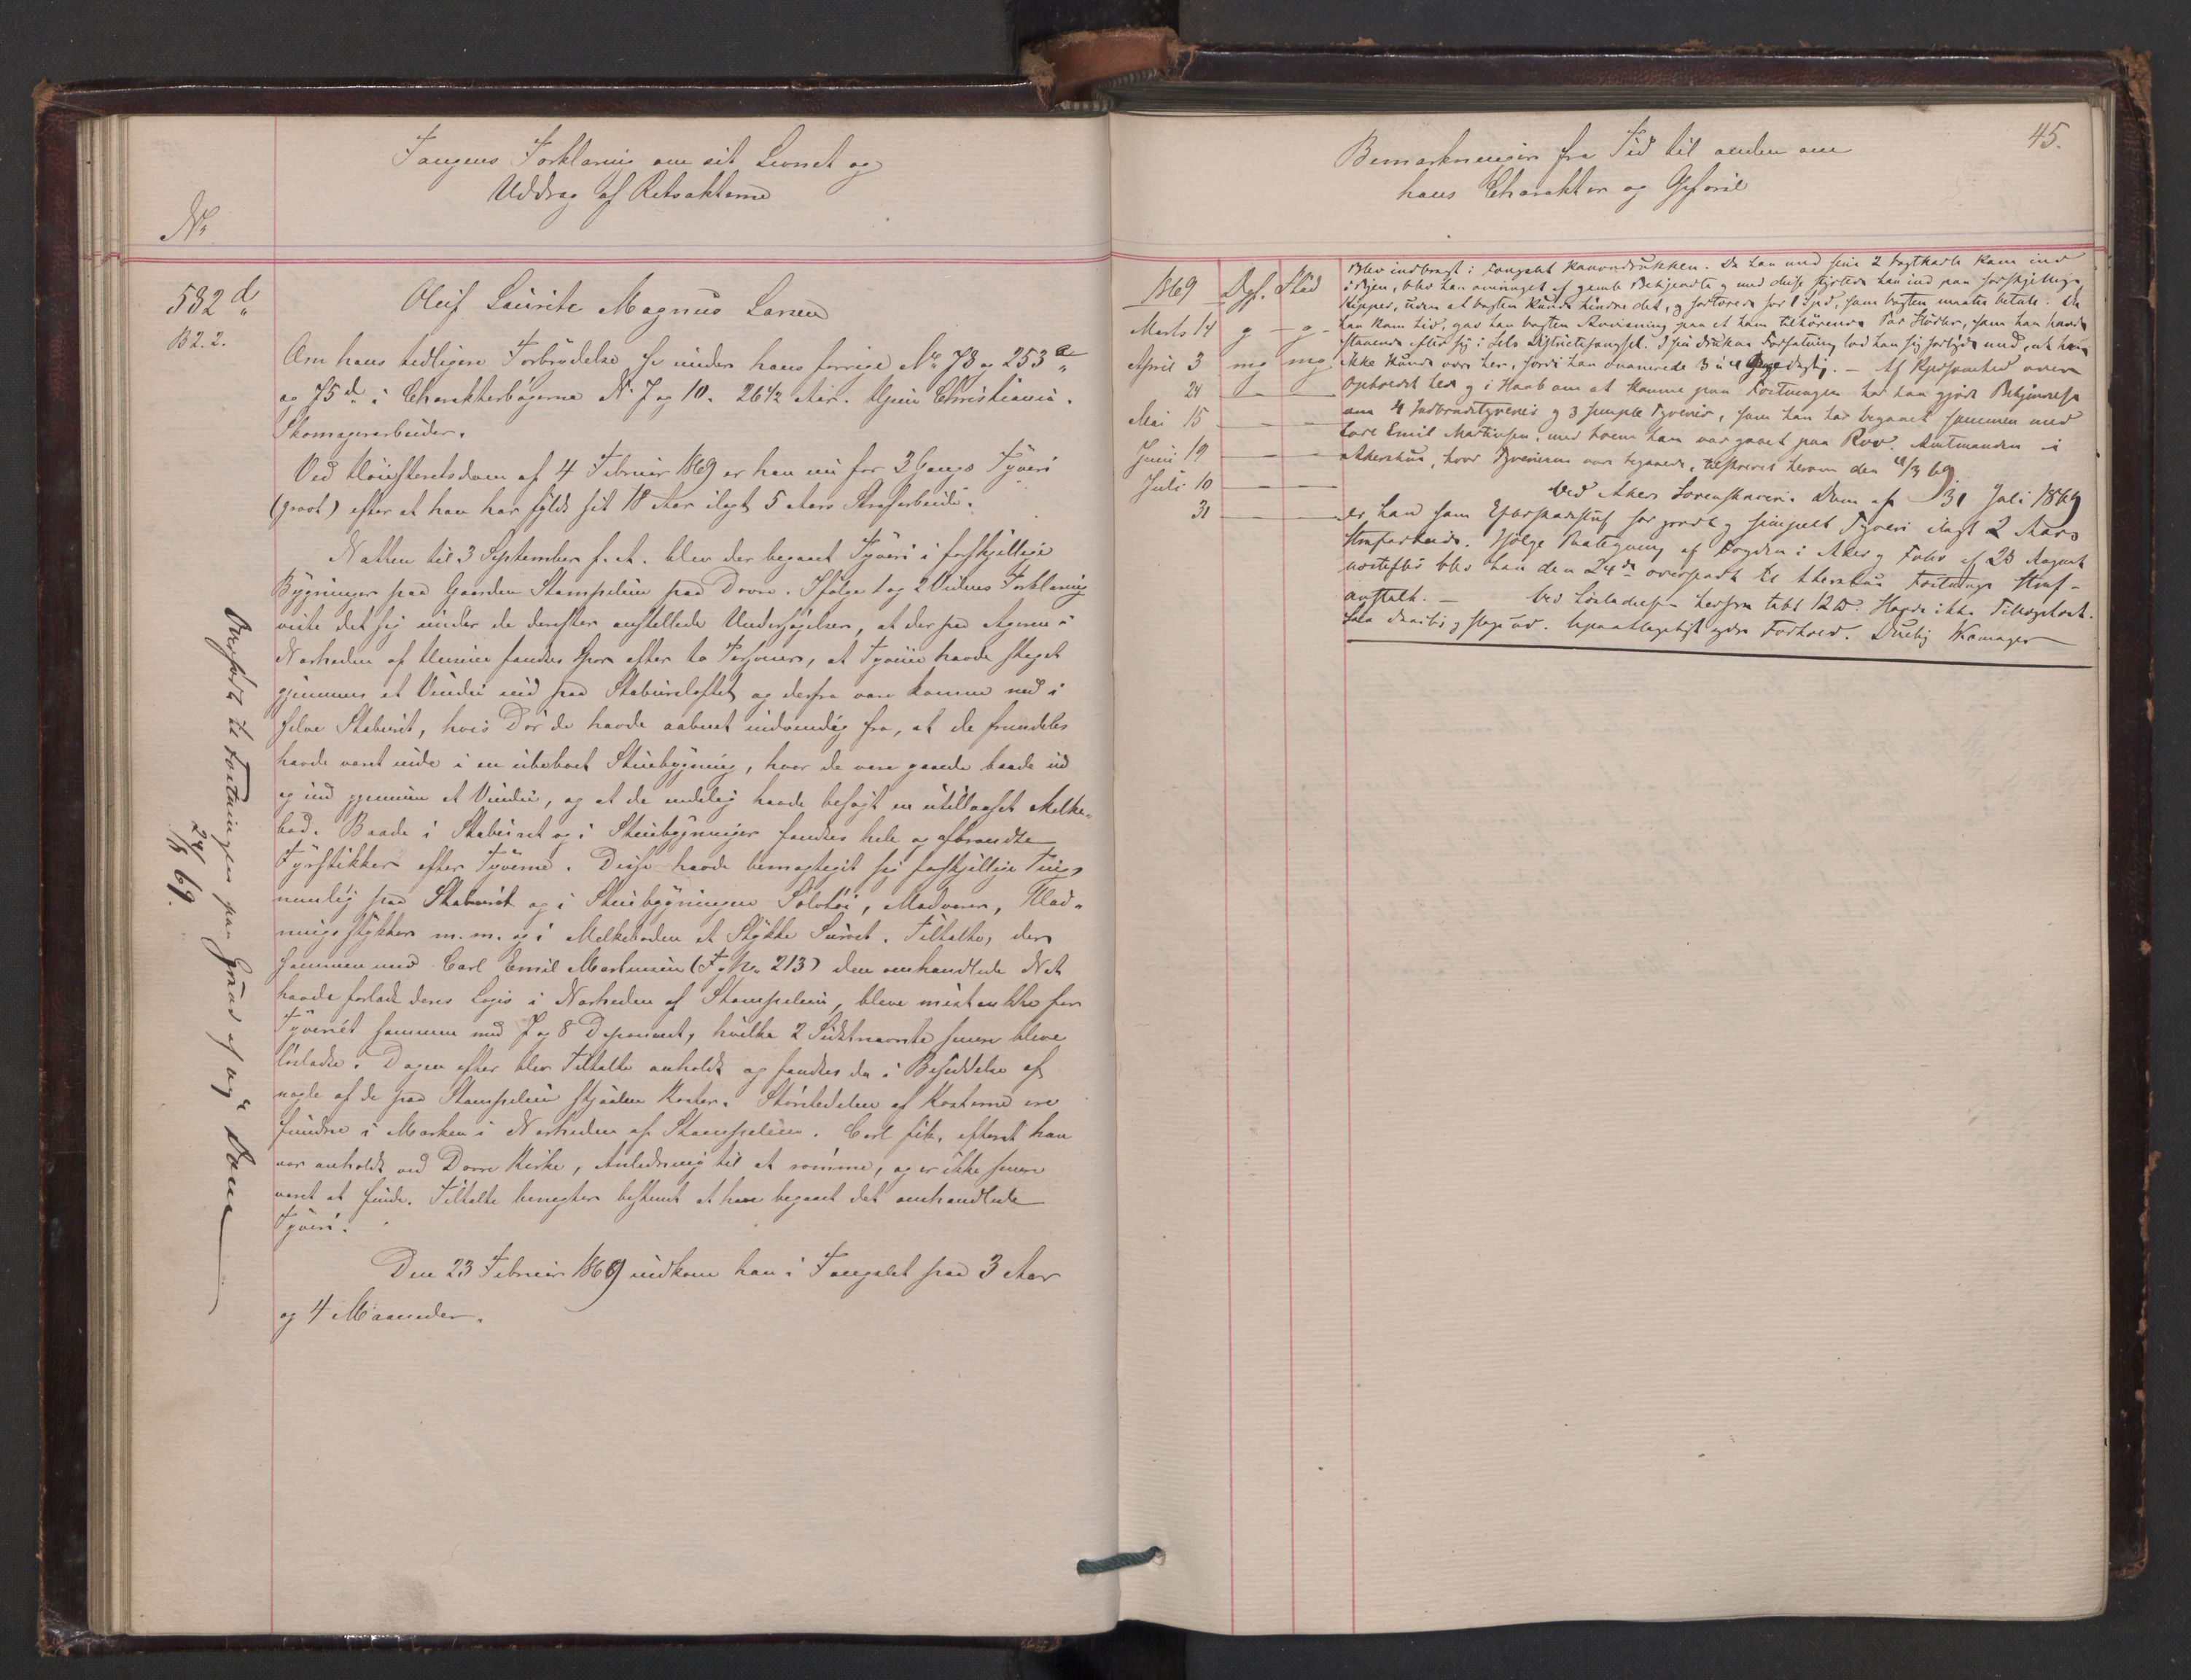 Fangens Forklaring om sit Levnet og
Uddrag af Retsakterne
No
532 d.
B 2. 2.
Oluf Laurits Magnus Larsen
Om hans tidligere Forbrydelse se under hans forrige No 78 og 253 a
og 75 d. i Charakterbøgerne No 7 og 10. 26 1/2 Aar. Hjem Christiania.
Skomagerarbeider.
Ved Høiesteretsdom af 4 Februar 1869 er han nu for 3 Gangs Tyveri
(grovt) efter at han har fyldt sit 18 Aar ilagt 5 Aars Strafarbeide.
Natten til 3 September f. A. blev der begaaet Tyveri i forskjellige
Bygninger paa Gaarden Stampelien paa Dovre. Ifølge 1 og 2 Vidnes Forklaring
viste det sig under de derefter anstillede Undersøgelser, at der paa Ageren i
Nærheden af Husene fandtes Spor efter to Personer, at Tyvene havde steget
gjennem et Vindu ind paa Stabursloftet og derfra vare komne ned i
selve Staburet, hvis Dør de havde aabnet indvendig fra, at de fremdeles
havde været inde i en ubeboet Stuebygning, hvor de vare gaaede baade ud
og ind gjennem et Vindu, og at de endelig havde besøgt en utillaaset Melke-
bod. Baade i Staburet og i Stuebygningen fandtes hele og afbrændte
Fyrstikker efter Tyvene. Disse havde bemægtiget sig forskjellige Ting,
nemlig paa Staburet og i Stuebygningen Sølvtøi, Madvarer, Klæd-
ningsstykker m. m. og i Melkeboden et Stykke Surost. Tiltalte, der
sammen med Carl Emil Martinsen (F. No. 213) den omhandlede Nat
havde forladt deres Logis i Nærheden af Stampelien, bleve mistænkte for
Tyveriet sammen med 7 og 8 Deponent, hvilke 2 Sidstnævnte senere bleve
løsladte. Dagen efter blev Tiltalte anholdt og fandtes da i Besiddelse af
nogle af de paa Stampelien stjaalne Koster. Størstedelen af Kosterne ere
fundne i Marken i Nærheden af Stampelien. Carl fik, efterat han
var anholdt ved Dovre Kirke, Anledning til at rømme, og er ikke senere
været at finde. Tiltalte benegter bestemt at have begaaet det omhandlede
Tyveri.
Den 23 Februar 1869 indkom han i Fangslet paa 3 Aar
og 4 Maaneder.
Overført til Fæstningen paa Grund af ny Dom
24/8 69.
45.
Bemærkninger fra Tid til anden om
hans Charakter og Opførsel
1869 Opf. Flid
Marts 14 g - g -
April 3 mg mg
24 — —
Mai 15 — —
Juni 19 — —
Juli 10 — —
31 — —
Blev indbragt i Fangslet kanondrukken. Da han med sine 2 Vagtkarle kom ind
i Byen, blev han omringet af gamle Bekjendte og med disse styrtede han ind paa forskjellige
Kipper, uden at Vagten kunde hindre det, og fortærede for 1 Spd, som Vagten maatte betale. Da
han kom hid, gav han Vagten Anvisning paa et ham tilhørende Par Støvler, som han havde
staaende efter sig i Lels Distriktsfængsel. I sin drukne Forfatning lod han sig forlyde med, at han
ikke kunde være her, fordi han avancerede 3 à 4 Gange daglig. — Af Kjedsomhed over
Opholdet her og i Haab om at komme paa Fæstningen har han gjort Bekjendelse
om 4 Indbrudstyverier og 3 simple Tyverier, som han har begaaet sammen med
Carl Emil Martinsen, med hvem han var gaaet paa Rov. Amtmanden i
Akershus, hvor Tyverierne vare begaaede, tilskrevet herom den /3 69
Ved Akers Sorenskriveris Dom af 31 Juli 1869
er han som Efterskudsstraf for grovt og simpelt Tyveri ilagt 2 Aars
Strafarbeide. Ifølge Paategning af Fogden i Aker og Follo af 23 August
næstefter blev han den 24de oversendt til Akershus Fæstnings Straf-
anstalt. — Ved Løsladelsen herfra tabt 12 . Havde ikke Tilregnet.
Lad og . Upaaklageligt ydre Forhold. Duelig Skomager